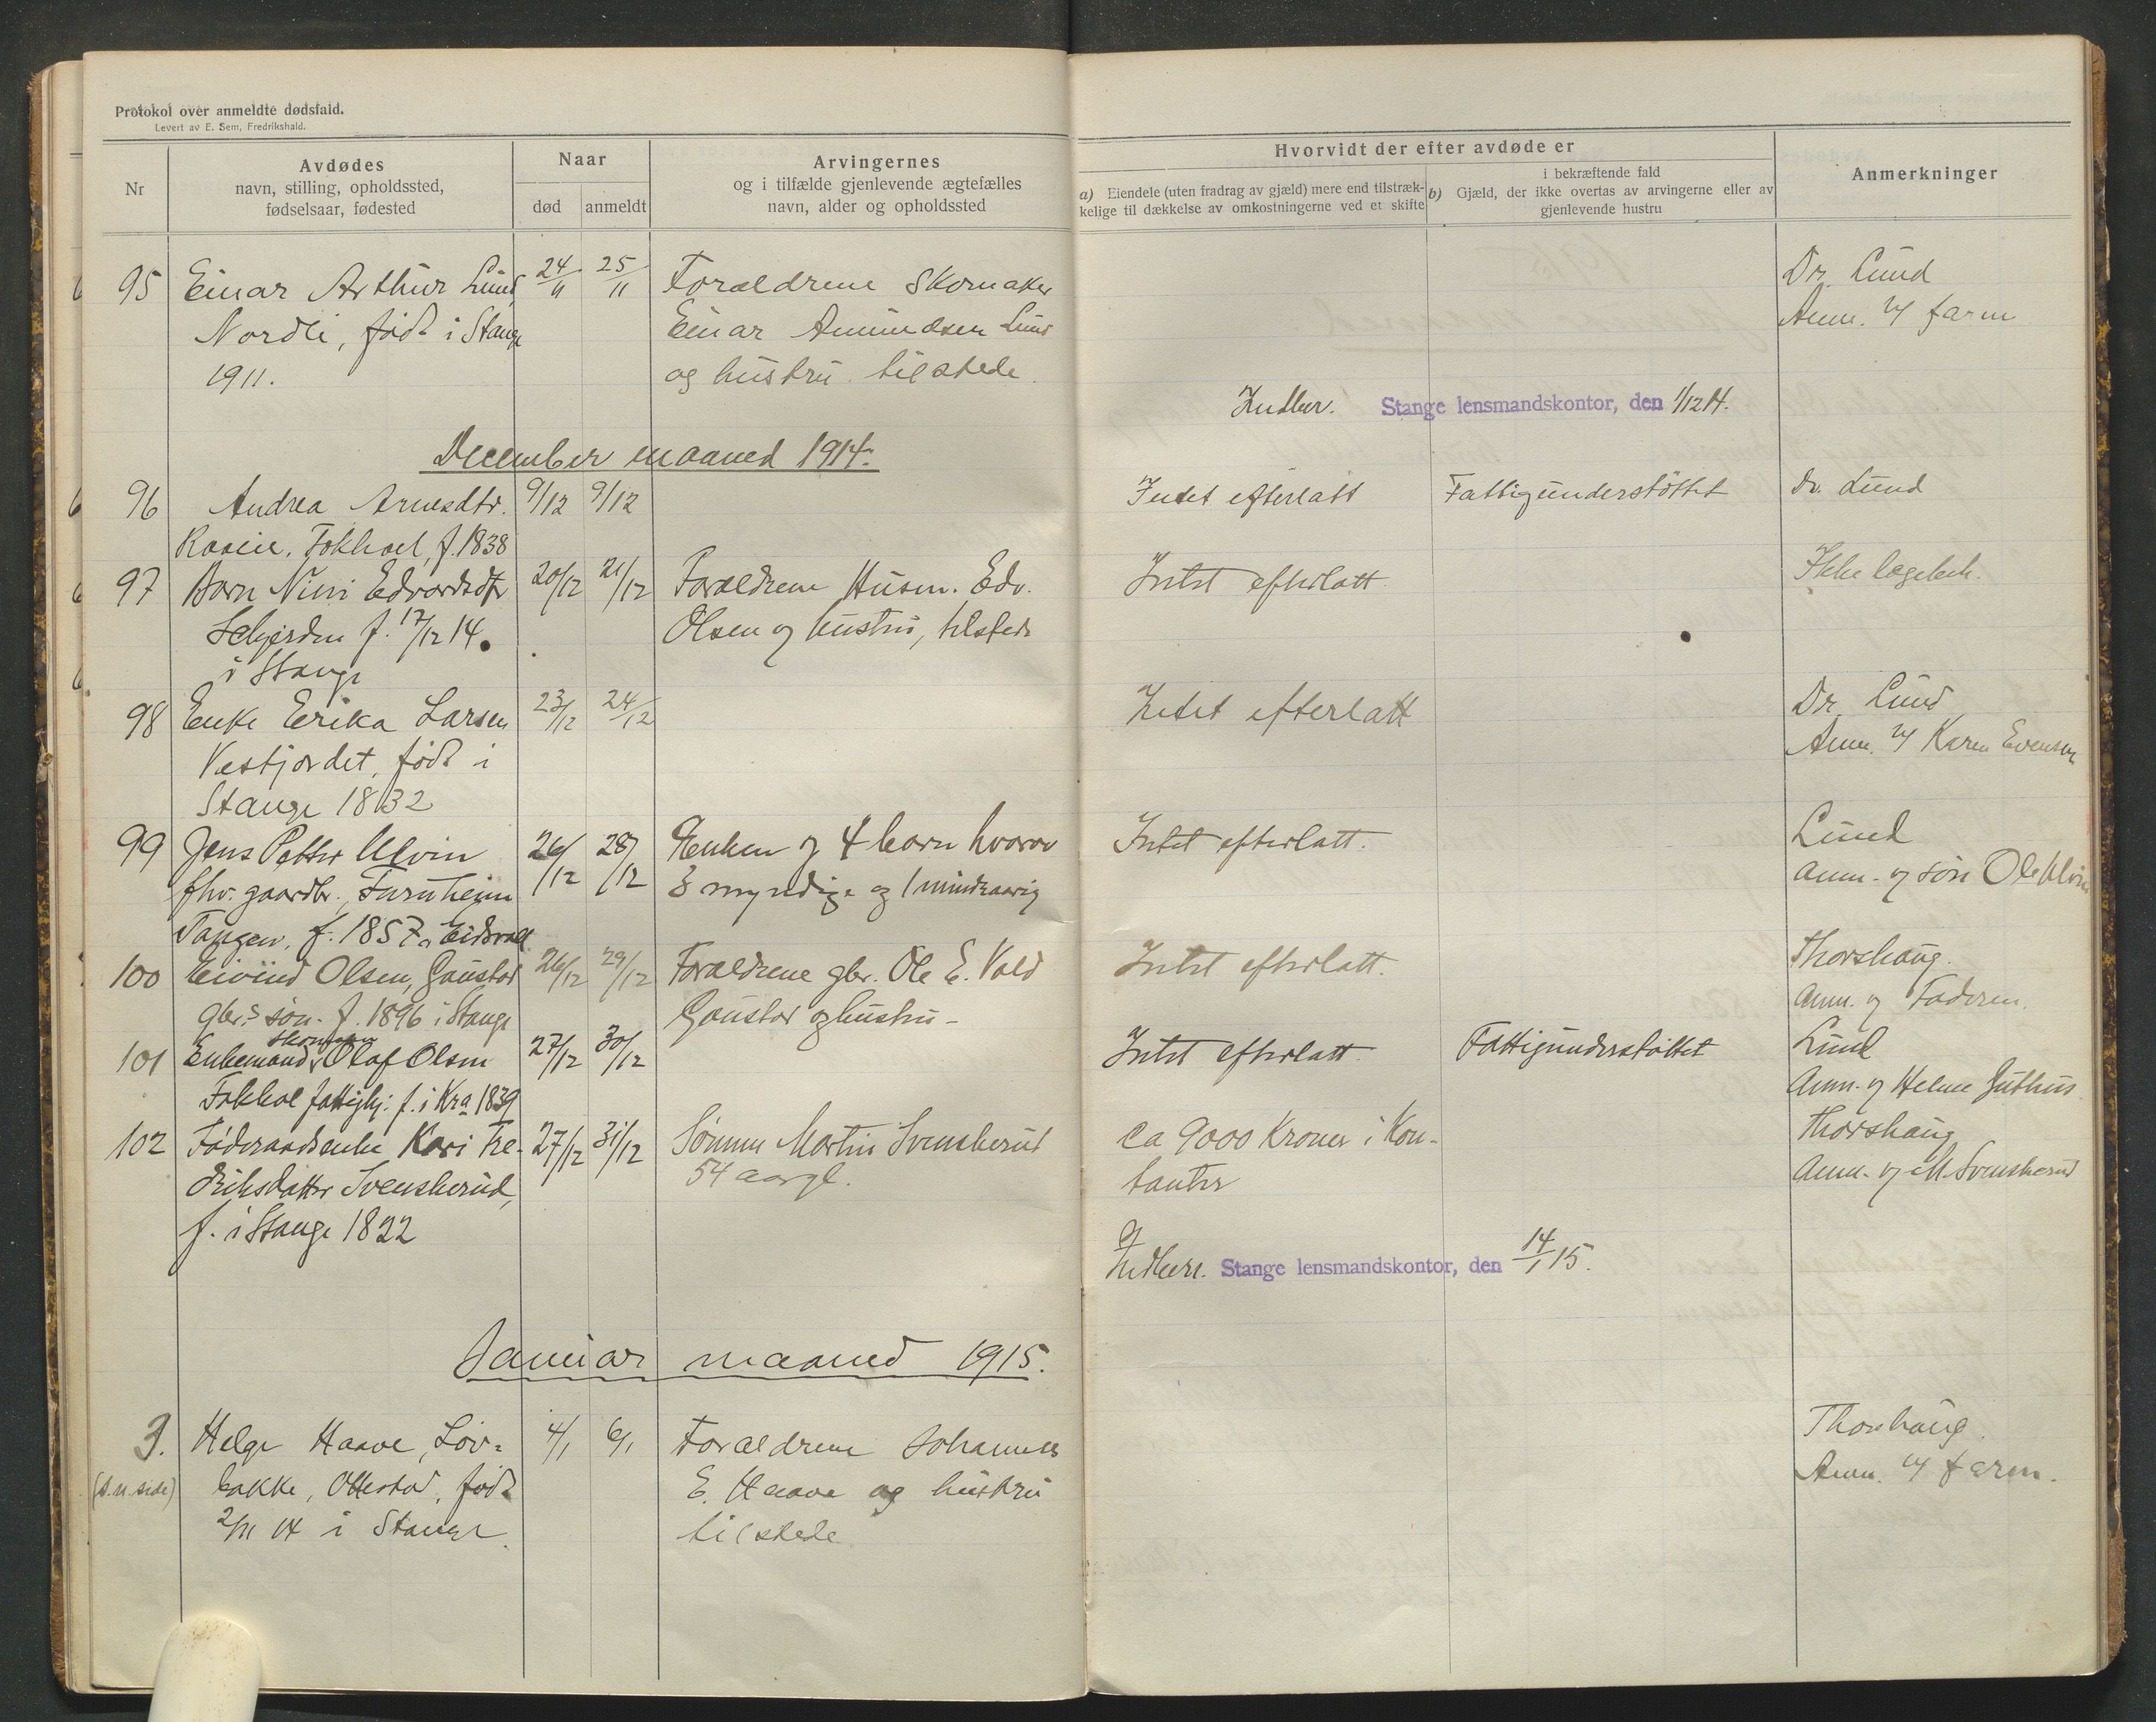 Protokol over anmeldte dødsfald.
Levert av E. Sem, Fredrikshald.
Nr
Avdødes
navn, stilling, opholdssted,
fødselsaar, fødested
Naar
død
anmeldt
Arvingernes
og i tilfælde gjenlevende ægtefælles
navn, alder og opholdssted
Hvorvidt der efter avdøde er
a) Eiendele (uten fradrag av gjæld) mere end tilstræk-
kelige til dækkelse av omkostningerne ved et skifte
i bekræftende fald
b) Gjæld, der ikke overtas av arvingerne eller av
gjenlevende hustru
Anmerkninger
95
Einar Arthur Lund
Nordli, født i Stange
1911.
24/11
25/11
Forældrene Skomaker
Einar Amundsen Lund
og hustru tilstede.
Dr. Lund
Anm. af farm
Indber. Stange lensmandskontor, den 1/12 14.
December maaned 1914.
96
Andrea Arnesdtr.
Fokhoel, f. 1838
9/12
9/12
Intet efterlatt
Fattigunderstøttet
Dr. Lund
97
Barn Nini Edvardsdtr
f. 17/12 14.
i Stange
20/12
21/12
Forældrene Husm. Edv.
Olsen og hustru, tilstede
Intet efterlatt.
Ikke lægebeh.
98
Enke Erika Larsen
Vestjordet, født i
Stange 1832
23/12
24/12
Intet efterlatt
Dr. Lund
Anm. af Karen Evensen
99
Jens Petter Ulvin
fhv. gaardbr., Furuheim
Tangen, f. 1857 i Eidsvoll
26/12
28/12
Enken og 4 barn hvorav
3 myndige og 1 mindreaarig
Intet efterlatt.
Lund
Anm. af søn Ole Ulvin
100
Eivind Olsen, Gaustad
gbr.s søn. f. 1896 i Stange
26/12
29/12
Forældrene gbr. Ole E. Vold
Gaustad og hustru
Intet efterlatt.
Thorshaug.
Anm. af Faderen.
101
Enkemand Olaf Olsen
Fokhol fattighj. f. i Kra 1839
27/12
30/12
Intet efterlatt.
Fattigunderstøttet
Lund
Anm. af Helene Guthus
102
Føderaadsenke Kari Fre-
driksdatter Svenskerud,
f. i Stange 1822
27/12
31/12
Sønnen Martin Svenskerud
54 aar gl.
Ca 9000 Kroner i Kon-
tanter
Thorshaug
Anm. af M. Svenskerud
Indber. Stange lensmandskontor, den 14/1 15.
Januar maaned 1915.
3.
(s. n. side)
Helge Haave, Løv=
bakke, Ottestad, født
2/11 14 i Stange.
4/1
6/1
Forældrene Johannes
E. Haave og hustru
tilstede
Thorshaug.
Anm. af farm.